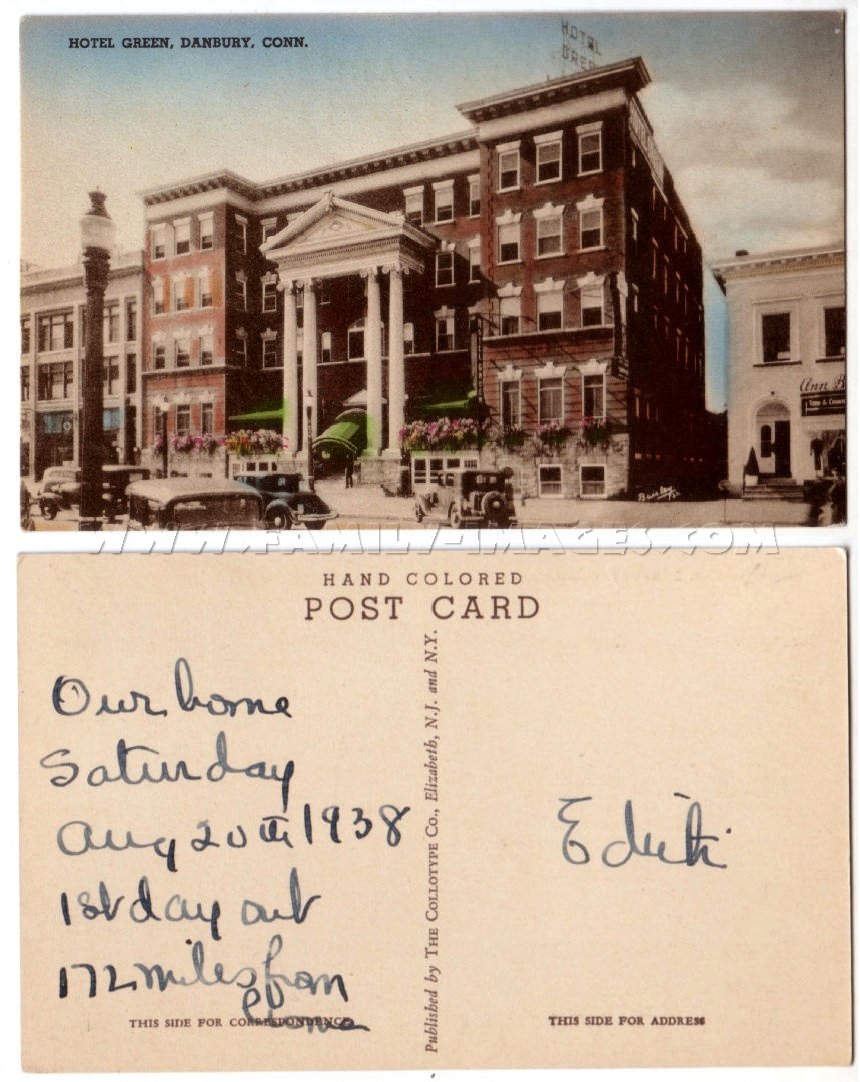 HOTEL GREEN, DANBURY, CONN.
HOTEL
WWW.FAMILY-IMAGES.COM
HAND COLORED
POST CARD
Our home
Saturday
Aug 20th 1938
1st day out
172 miles from
home
Edith
Published by THE COLLOTYPE CO., Elizabeth, N.J. and N.Y.
THIS SIDE FOR CORRESPONDENCE
THIS SIDE FOR ADDRESS